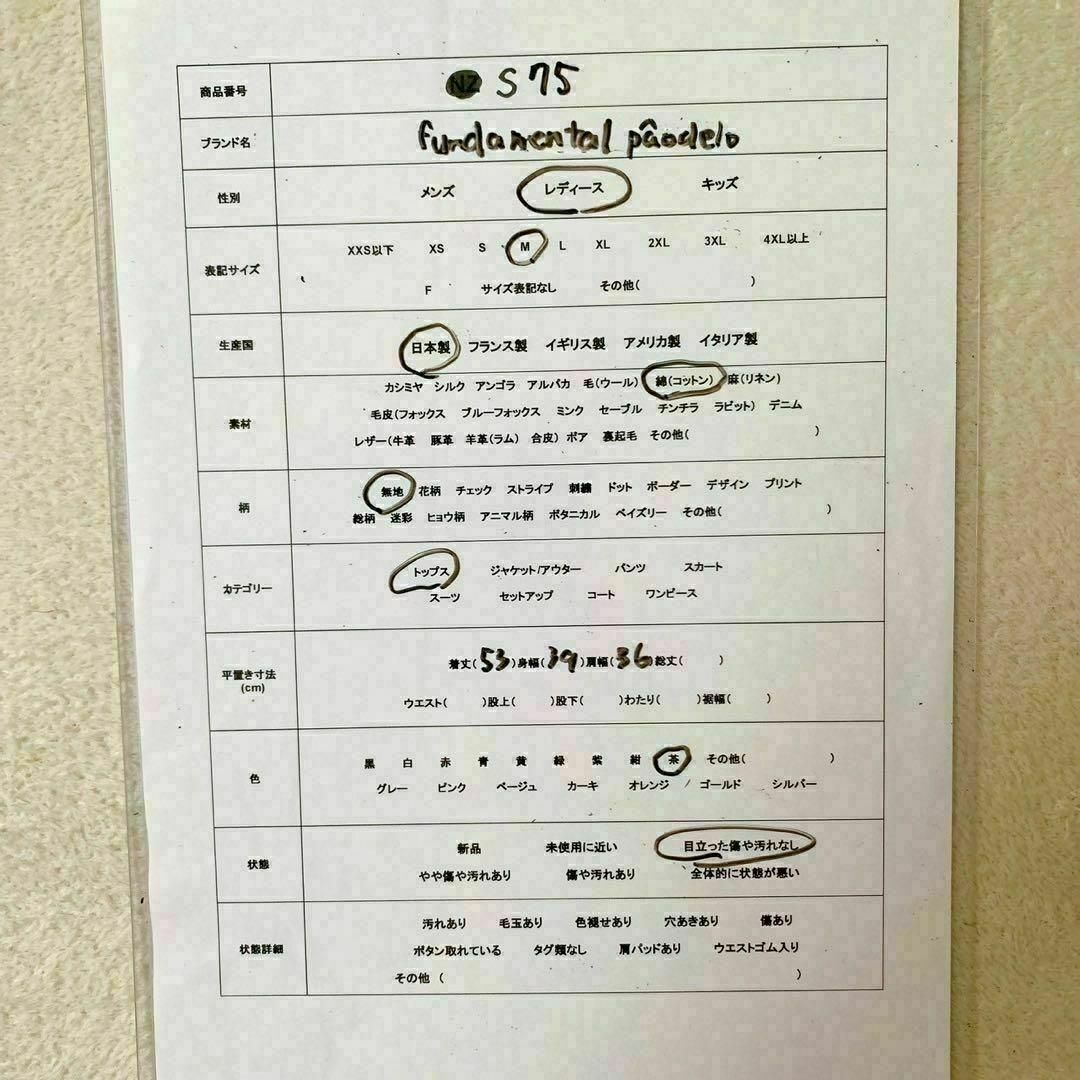 商品番号 NZ S 75
ブランド名 fundamental pâodelo
性別 メンズ レディース キッズ
XXS以下 XS S M L XL 2XL 3XL 4XL以上
表記サイズ
F サイズ表記なし その他( )
生産国 日本製 フランス製 イギリス製 アメリカ製 イタリア製
カシミヤ シルク アンゴラ アルパカ 毛(ウール) 綿(コットン) 麻(リネン)
素材 毛皮(フォックス ブルーフォックス ミンク セーブル チンチラ ラビット) デニム
レザー(牛革 豚革 羊革(ラム) 合皮) ボア 裏起毛 その他( )
無地 花柄 チェック ストライプ 刺繍 ドット ボーダー デザイン プリント
柄
総柄 迷彩 ヒョウ柄 アニマル柄 ボタニカル ペイズリー その他( )
トップス ジャケット/アウター パンツ スカート
カテゴリー
スーツ セットアップ コート ワンピース
着丈(53)身幅(39)肩幅(36 総丈( )
平置き寸法
(cm)
ウエスト( )股上( )股下( )わたり( )裾幅( )
黒 白 赤 青 黄 緑 紫 紺 茶 その他( )
色
グレー ピンク ベージュ カーキ オレンジ ゴールド シルバー
新品 未使用に近い 目立った傷や汚れなし
状態
やや傷や汚れあり 傷や汚れあり 全体的に状態が悪い
汚れあり 毛玉あり 色褪せあり 穴あきあり 傷あり
状態詳細 ボタン取れている タグ類なし 肩パッドあり ウエストゴム入り
その他 ( )